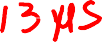 13 μs